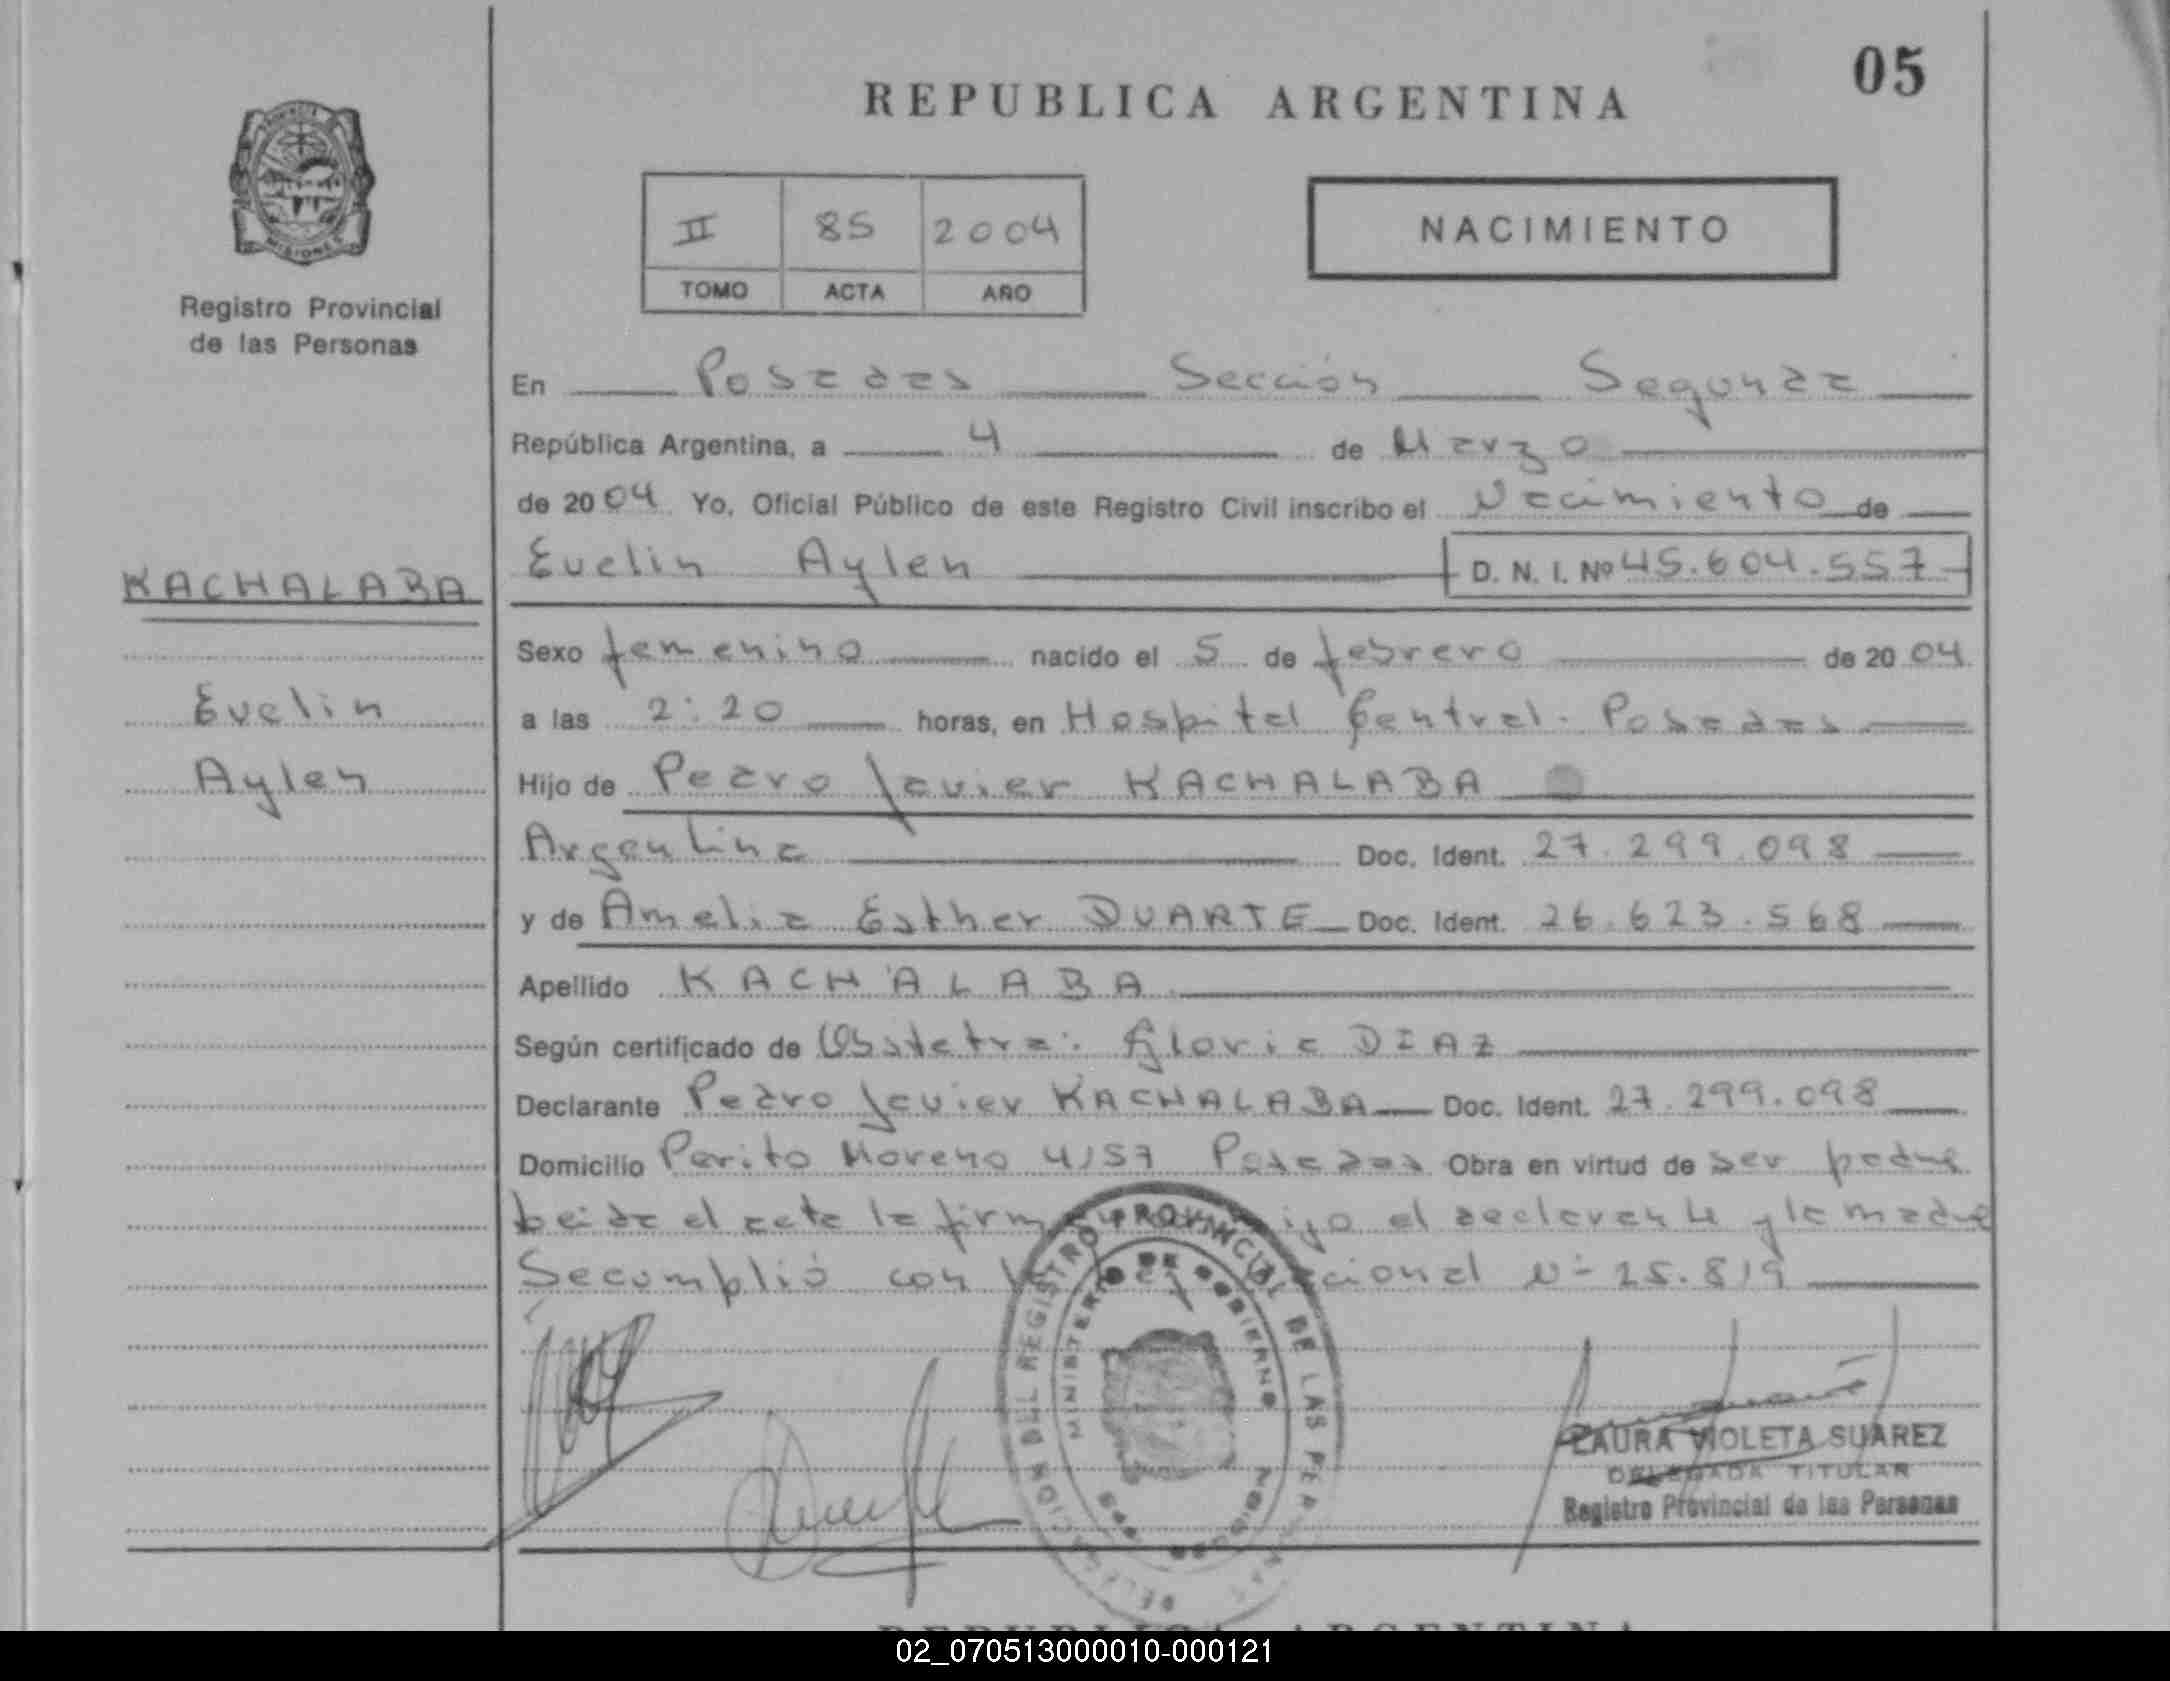 05
REPUBLICA ARGENTINA
MISIONES
Registro Provincial
de las Personas
II 85 2004
TOMO ACTA AÑO
NACIMIENTO
En Posadas Sección Segunda
República Argentina, a 4 de Marzo
de 2004 Yo, Oficial Público de este Registro Civil inscribo el Nacimiento de
KACHALABA
Evelin
Aylen
Evelin Aylen D. N. I. Nº 45.604.557
Sexo femenino nacido el 5 de febrero de 2004
a las 2:20 horas, en Hospital Central. Posadas
Hijo de Pedro Javier KACHALABA
Argentina Doc. Ident. 27.299.098
y de Amelia Esther DUARTE Doc. Ident. 26.623.568
Apellido KACHALABA
Según certificado de Obstetra: Gloria DIAZ
Declarante Pedro Javier KACHALABA Doc. Ident. 27.299.098
Domicilio Perito Moreno 4157 Posadas Obra en virtud de ser padre
Leida el acta la firman el declarante y la madre
Se cumplió con la Ley Nacional Nº 25.819
DELEGACION DEL REGISTRO PROVINCIAL DE LAS PERSONAS
MINISTERIO DE GOBIERNO
LAURA VIOLETA SUAREZ
DELEGADA TITULAR
Registro Provincial de las Personas
REPUBLICA ARGENTINA
02_070513000010-000121